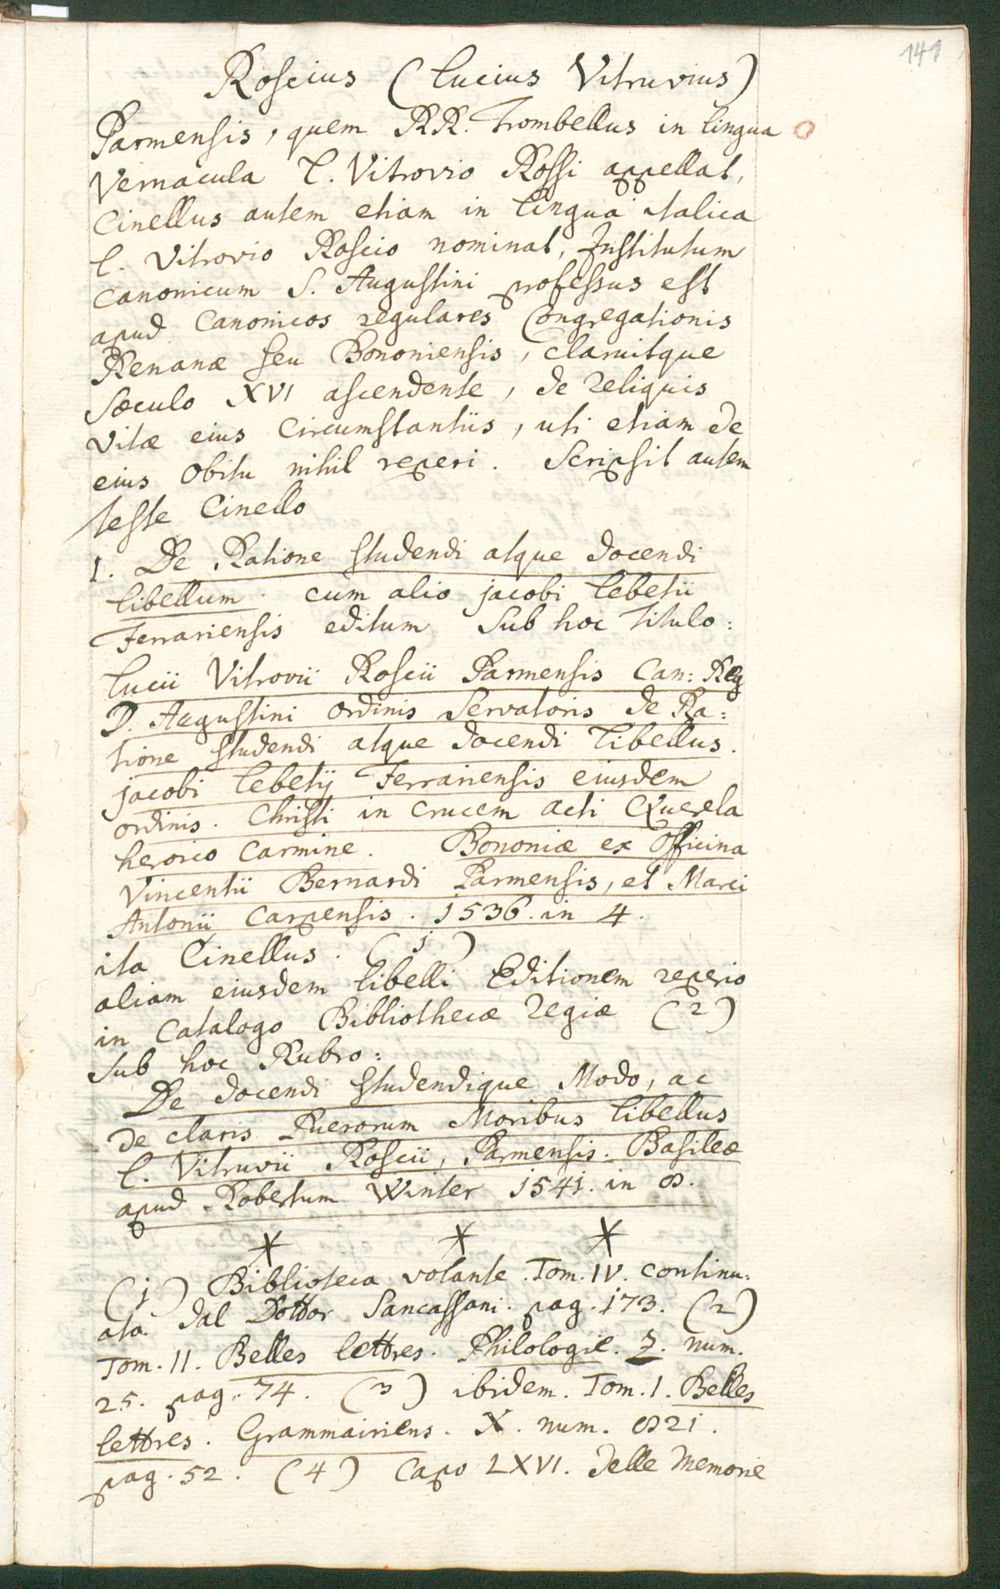 141
Roscius (Lucius Vitruvius)
Parmensis, quem RR. Trombellus in lingua
Vernacula L. Vitrovio Rossi appellat,
Cinellus autem etiam in lingua italica
L. Vitrovio Roscio nominat, Institutum
Canonicum S. Augustini professus est
apud Canonicos regulares Congregationis
Renanæ seu Bononiensis, claruitque
Sæculo XVI ascendente, de reliquis
vitæ eius Circumstantiis, uti etiam de
eius obitu nihil reperi. Scripsit autem
teste Cinello
1. De Ratione studendi atque docendi
libellum. cum alio jacobi Lebetii
Ferrariensis editum Sub hoc Titulo:
Lucii Vitrovii Roscii Parmensis Can: Reg
D. Augustini ordinis Servatoris de Ra:
tione studendi atque docendi Libellus.
jacobi Lebetij Ferrariensis eiusdem
ordinis. Christi in Crucem acti Querela
heroico Carmine. Bononiæ ex officina
Vincentii Bernardi Parmensis, et Marci
Antonii Carpensis. 1536. in 4.
ita Cinellus. (1)
aliam eiusdem libelli Editionem reperio
in Catalogo Bibliothecæ regiæ (2)
sub hoc Rubro:
De docendi studendique Modo, ac
de claris Puerorum Moribus libellus
L. Vitruvii Roscii, Parmensis. Basileæ
apud Robertum Winter 1541. in 8.
* * *
(1) Biblioteca volante. Tom. IV. continu:
ata dal Dottor Sancassani. pag. 173. (2)
Tom. II. Belles lettres. Philologie. Z. num.
25. pag. 74. (3) ibidem. Tom. I. Belles
lettres. Grammairiens. X. num. 821.
pag. 52. (4) Capo LXVI. delle Memorie